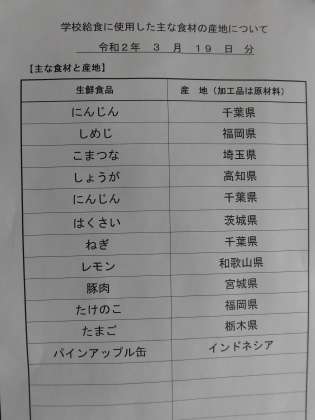 学校給食に使用した主な食材の産地について
令和2年 3 月 19 日 分
【主な食材と産地】
生鮮食品 産 地(加工品は原材料)
にんじん 千葉県
しめじ 福岡県
こまつな 埼玉県
しょうが 高知県
にんじん 千葉県
はくさい 茨城県
ねぎ 千葉県
レモン 和歌山県
豚肉 宮城県
たけのこ 福岡県
たまご 栃木県
パインアップル缶 インドネシア